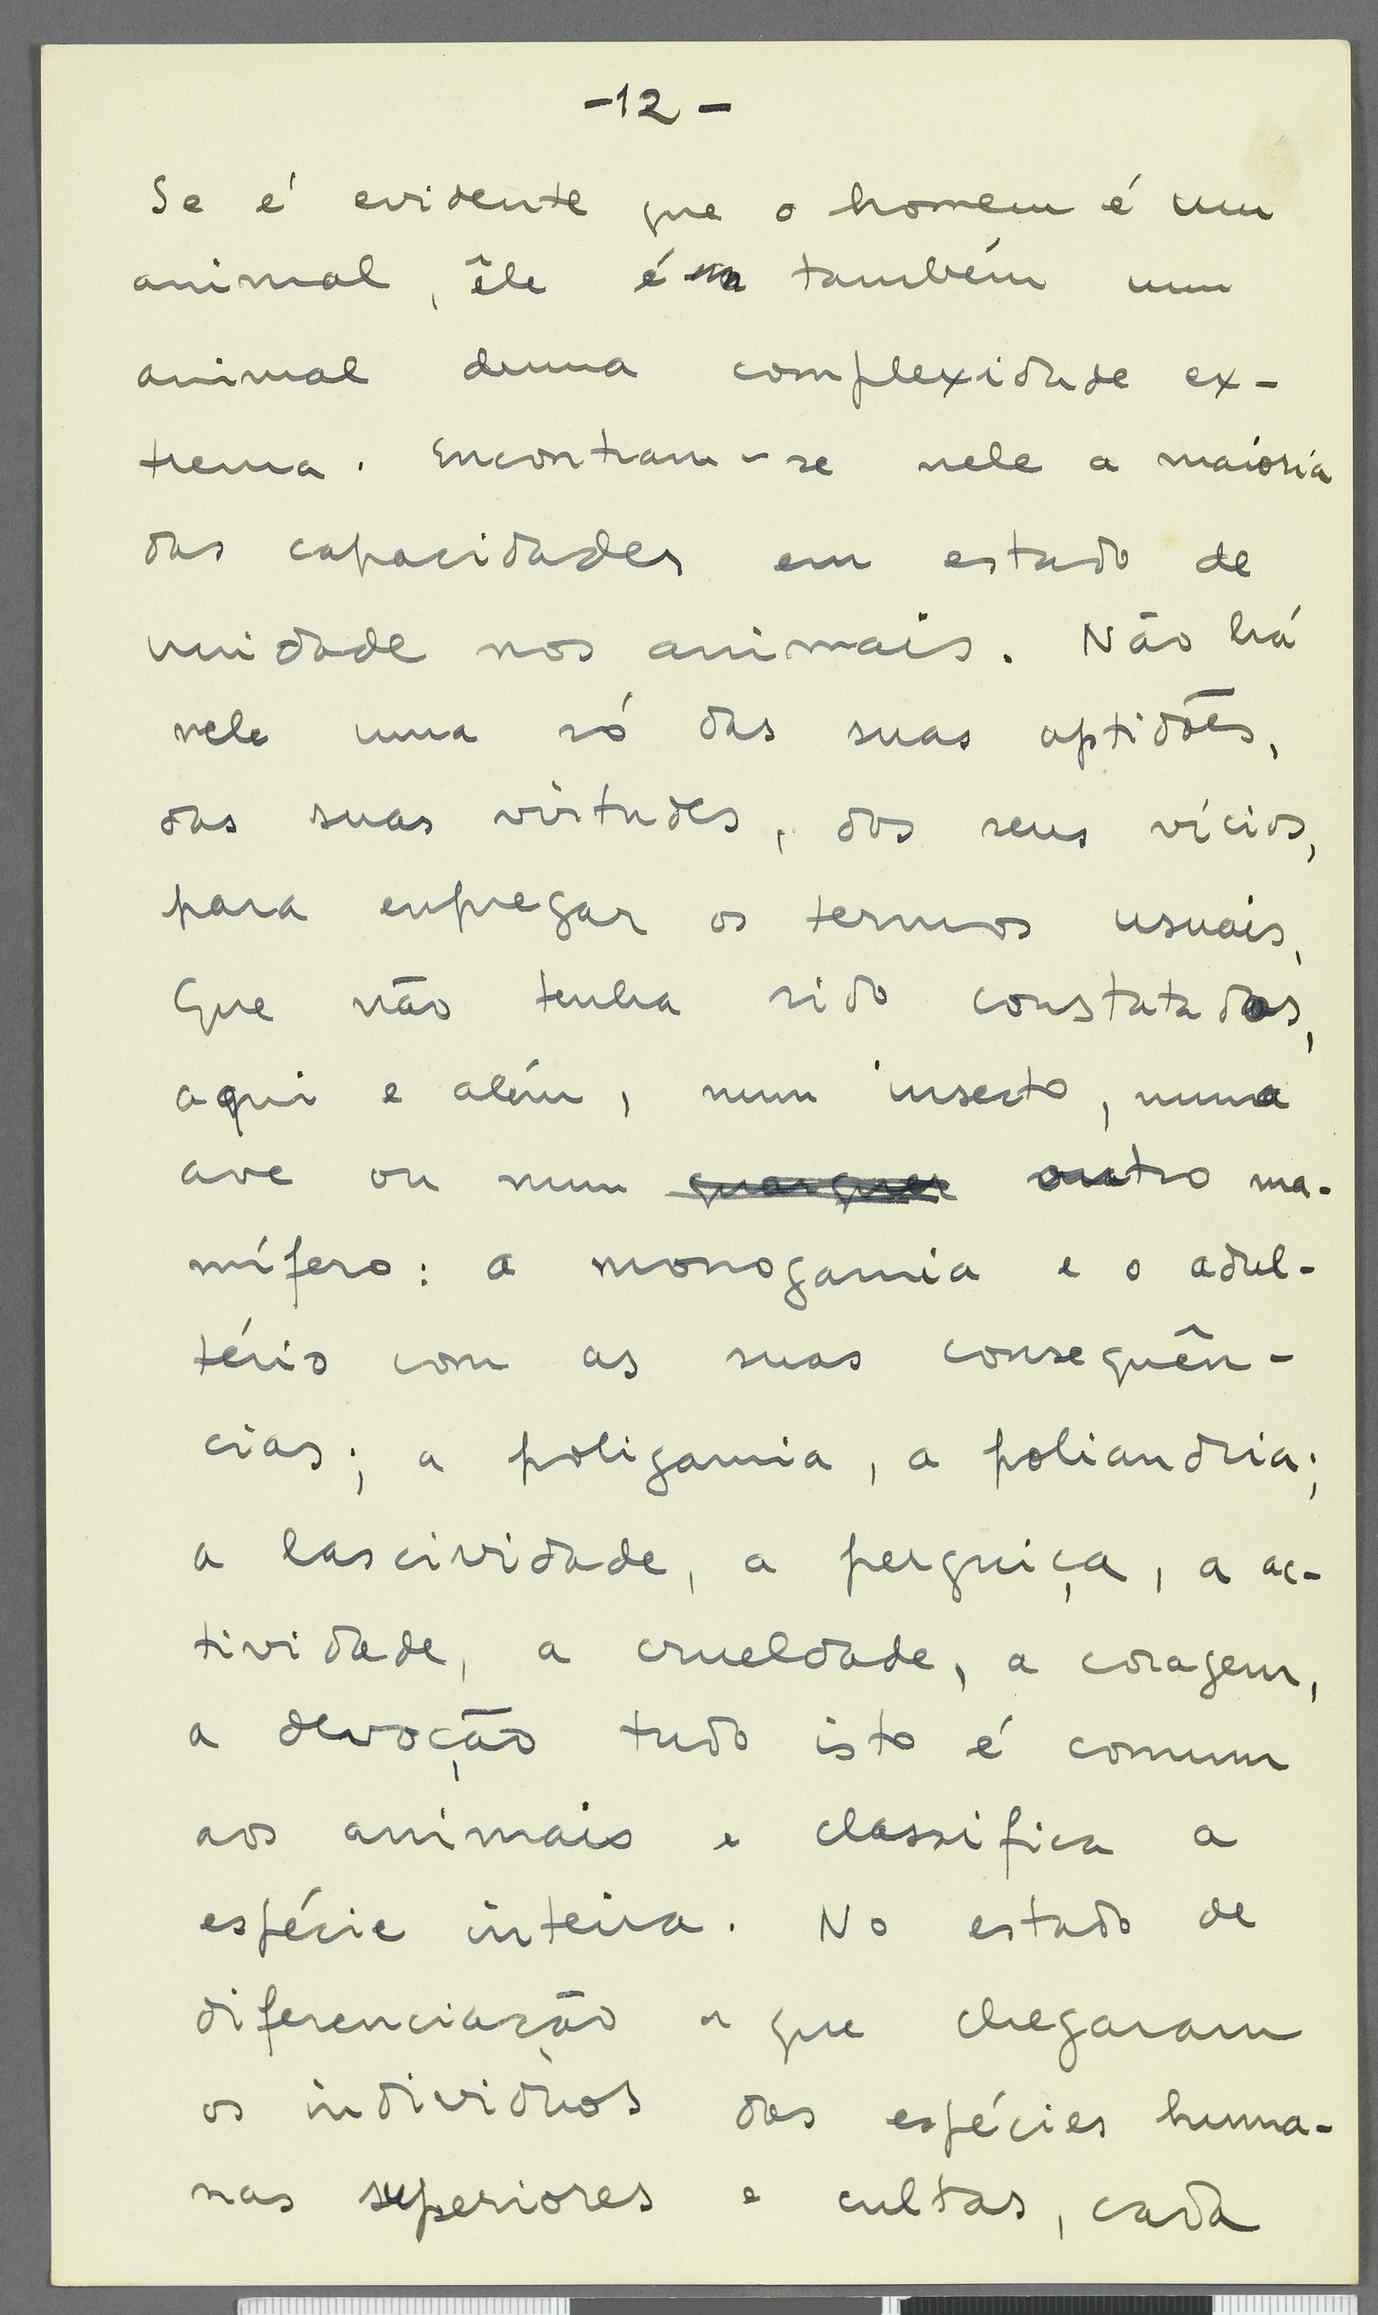 -12-
Se é evidente que o homem é um
animal, êle é também um
animal duma complexidade ex-
trema. Encontram-se nele a maioria
das capacidades em estado de
unidade nos animais. Não há
nele uma só das suas aptidões,
das suas virtudes, dos seus vícios,
para empregar os termos usuais,
Que não tenha sido constatados,
aqui e além, num insecto, numa
ave ou num quarquer outro ma-
mífero: a monogamia e o adul-
tério com as suas consequên-
cias; a poligamia, a poliandria;
a lascividade, a perguiça, a ac-
tividade, a crueldade, a coragem,
a devoção tudo isto é comum
aos animais e classifica a
espécie inteira. No estado de
diferenciação a que chegaram
os indivíduos das espécies huma-
nas superiores e cultas, cada